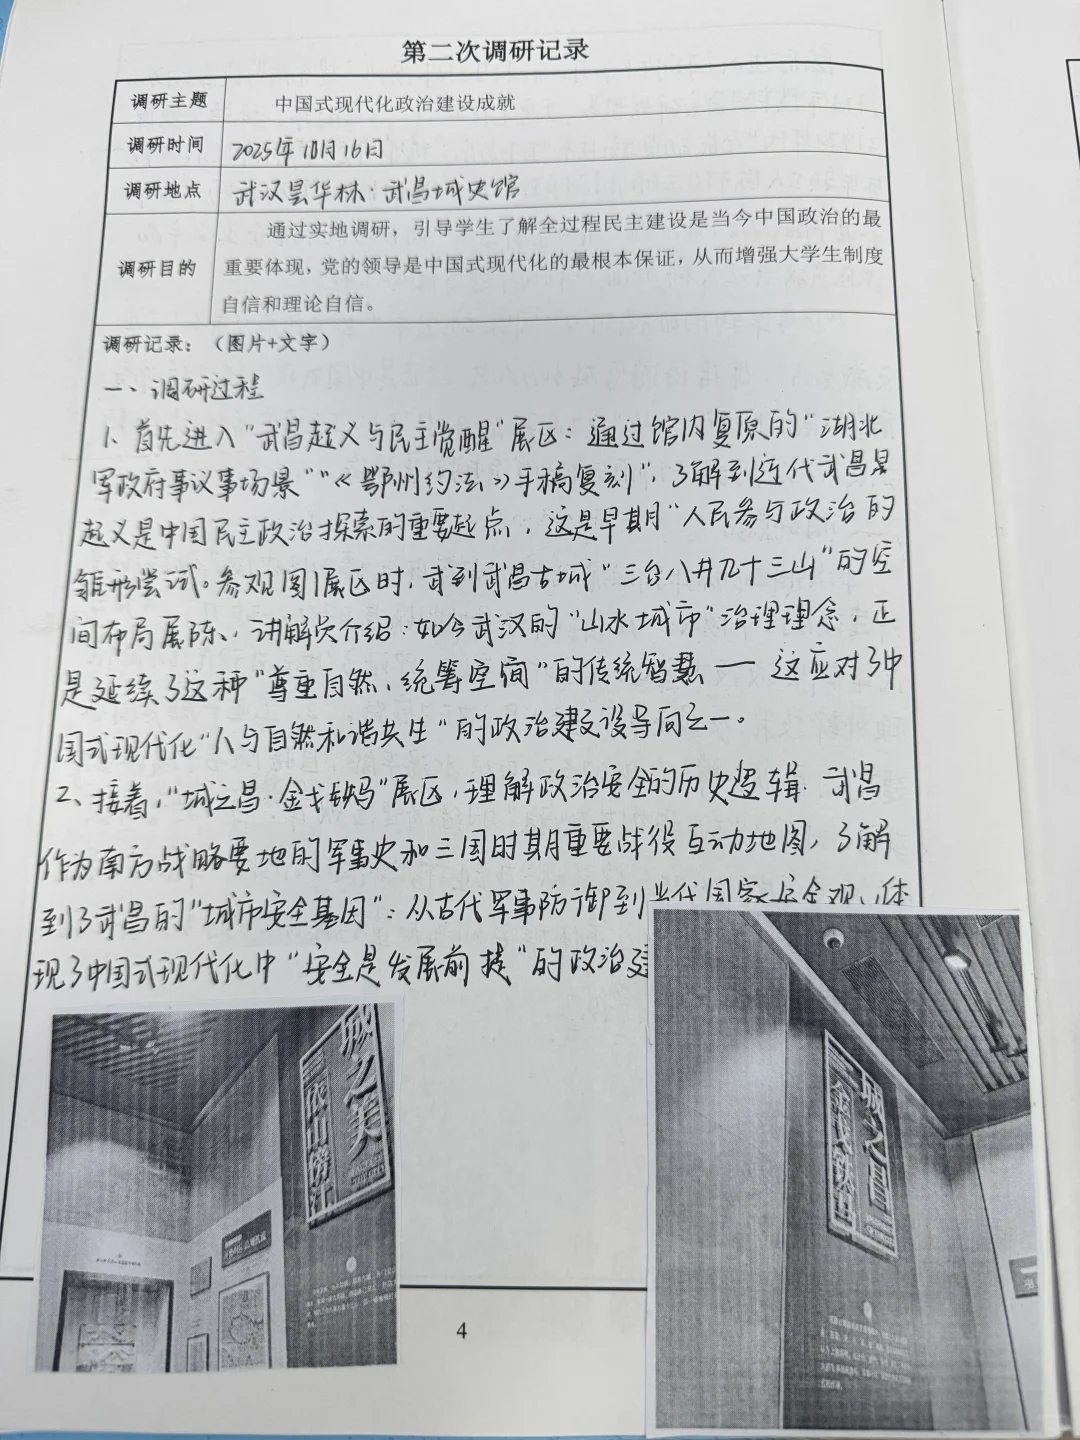 第二次调研记录
调研主题 中国式现代化政治建设成就
调研时间 2025年10月16日
调研地点 武汉昙华林·武昌城史馆
调研目的 通过实地调研，引导学生了解全过程民主建设是当今中国政治的最
重要体现，党的领导是中国式现代化的最根本保证，从而增强大学生制度
自信和理论自信。
调研记录：（图片+文字）
一、调研过程
1、首先进入“武昌起义与民主觉醒”展区：通过馆内复原的“湖北
军政府事议事场景”“《鄂州约法》手稿复刻”，了解到近代武昌是
起义是中国民主政治探索的重要起点，这是早期“人民参与政治的
雏形尝试。参观图展区时，武到武昌古城“三台八井九十三山”的空
间布局展陈、讲解员介绍：如今武汉的“山水城市”治理理念，正
是延续了这种“尊重自然、统筹空间”的传统智慧——这应对了中
国式现代化“人与自然和谐共生”的政治建设导向之一。
2、接着，“城之昌·金戈铁马”展区，理解政治安全的历史逻辑．武昌
作为南方战略要地的军事史和三国时期重要战役互动地图，了解
到了武昌的“城市安全基因”：从古代军事防御到当代国家安全观，体
现了中国式现代化中“安全是发展前提”的政治建
城之美
依山傍江
城之昌
金戈铁马
4